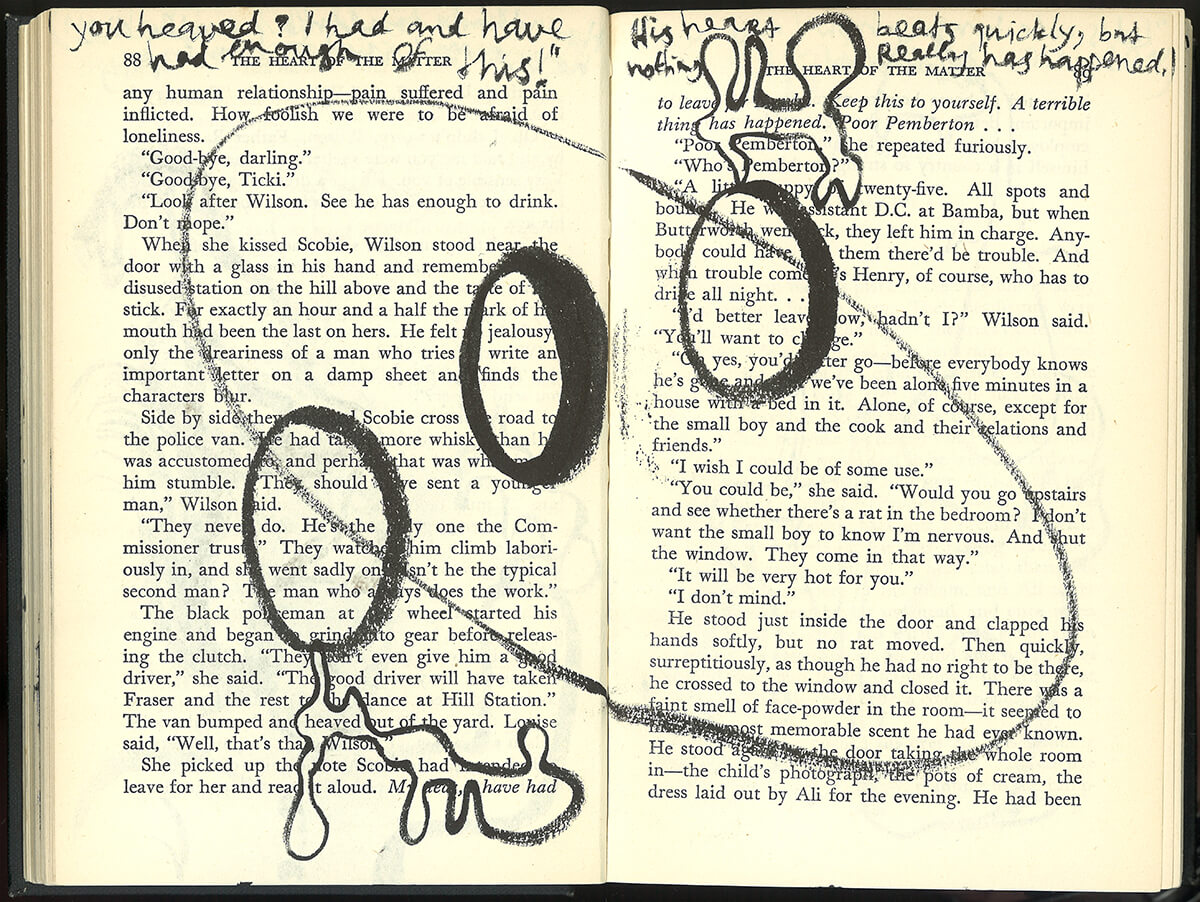 you heaved? I had and have
had enough of this!"
88 THE HEART OF THE MATTER
any human relationship—pain suffered and pain
inflicted. How foolish we were to be afraid of
loneliness.
"Good-bye, darling."
"Good-bye, Ticki."
"Look after Wilson. See he has enough to drink.
Don't mope."
When she kissed Scobie, Wilson stood near the
door with a glass in his hand and remembe
disused station on the hill above and the taste of
stick. For exactly an hour and a half the mark of h
mouth had been the last on hers. He felt no jealousy
only the dreariness of a man who tries write an
important letter on a damp sheet an finds the
characters blur.
Side by side they Scobie cross road to
the police van. He had ta more whisk than h
was accustomed to, and perha that was wh
him stumble. "They should ve sent a younger
man," Wilson said.
"They never do. He's the ly one the Com-
missioner trust." They watched him climb labori-
ously in, and s went sadly on, Isn't he the typical
second man? The man who always does the work."
The black policeman at wheel started his
engine and began grind to gear before releas-
ing the clutch. "They n't even give him a good
driver," she said. "The good driver will have taken
Fraser and the rest to the dance at Hill Station."
The van bumped and heaved out of the yard. Louise
said, "Well, that's that, Wilson."
She picked up the note Scobie had tended
leave for her and read it aloud. My dear, have had
His heart beats quickly, but
nothing Really has happened!
THE HEART OF THE MATTER 89
to leave Keep this to yourself. A terrible
thing has happened. Poor Pemberton . . .
"Poor Pemberton," she repeated furiously.
"Who's Pemberton?"
"A lit ppy twenty-five. All spots and
boun He w assistant D.C. at Bamba, but when
Butterworth wen ck, they left him in charge. Any-
body could hav them there'd be trouble. And
when trouble come 's Henry, of course, who has to
drive all night. . .
"I'd better leave now, hadn't I?" Wilson said.
"You'll want to c ge."
"Oh yes, you'd ter go—before everybody knows
he's gone and we've been alone five minutes in a
house with a bed in it. Alone, of course, except for
the small boy and the cook and their relations and
friends."
"I wish I could be of some use."
"You could be," she said. "Would you go upstairs
and see whether there's a rat in the bedroom? I don't
want the small boy to know I'm nervous. And shut
the window. They come in that way."
"It will be very hot for you."
"I don't mind."
He stood just inside the door and clapped his
hands softly, but no rat moved. Then quickly,
surreptitiously, as though he had no right to be there,
he crossed to the window and closed it. There was a
faint smell of face-powder in the room—it seemed to
most memorable scent he had ever known.
He stood again the door taking the whole room
in—the child's photograph, the pots of cream, the
dress laid out by Ali for the evening. He had been